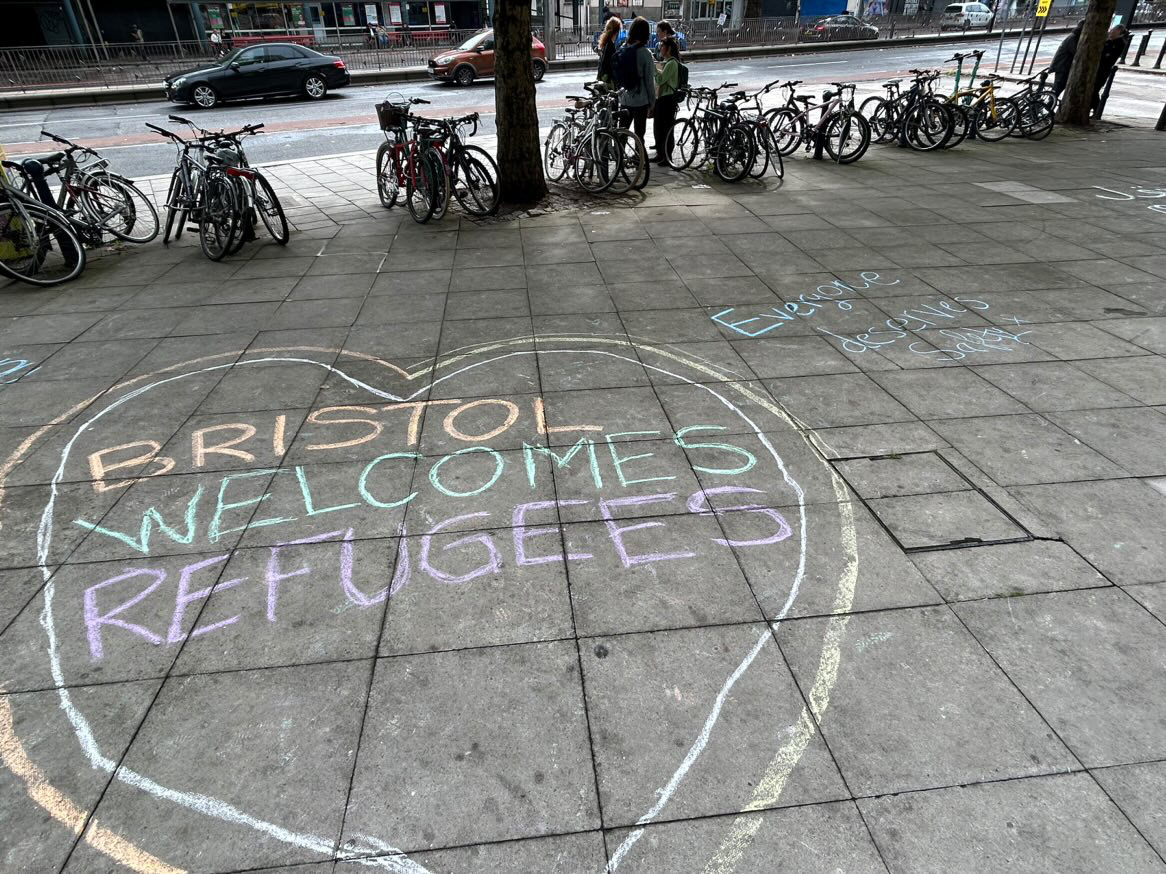 BRISTOL
WELCOMES
REFUGEES
Everyone
deserves